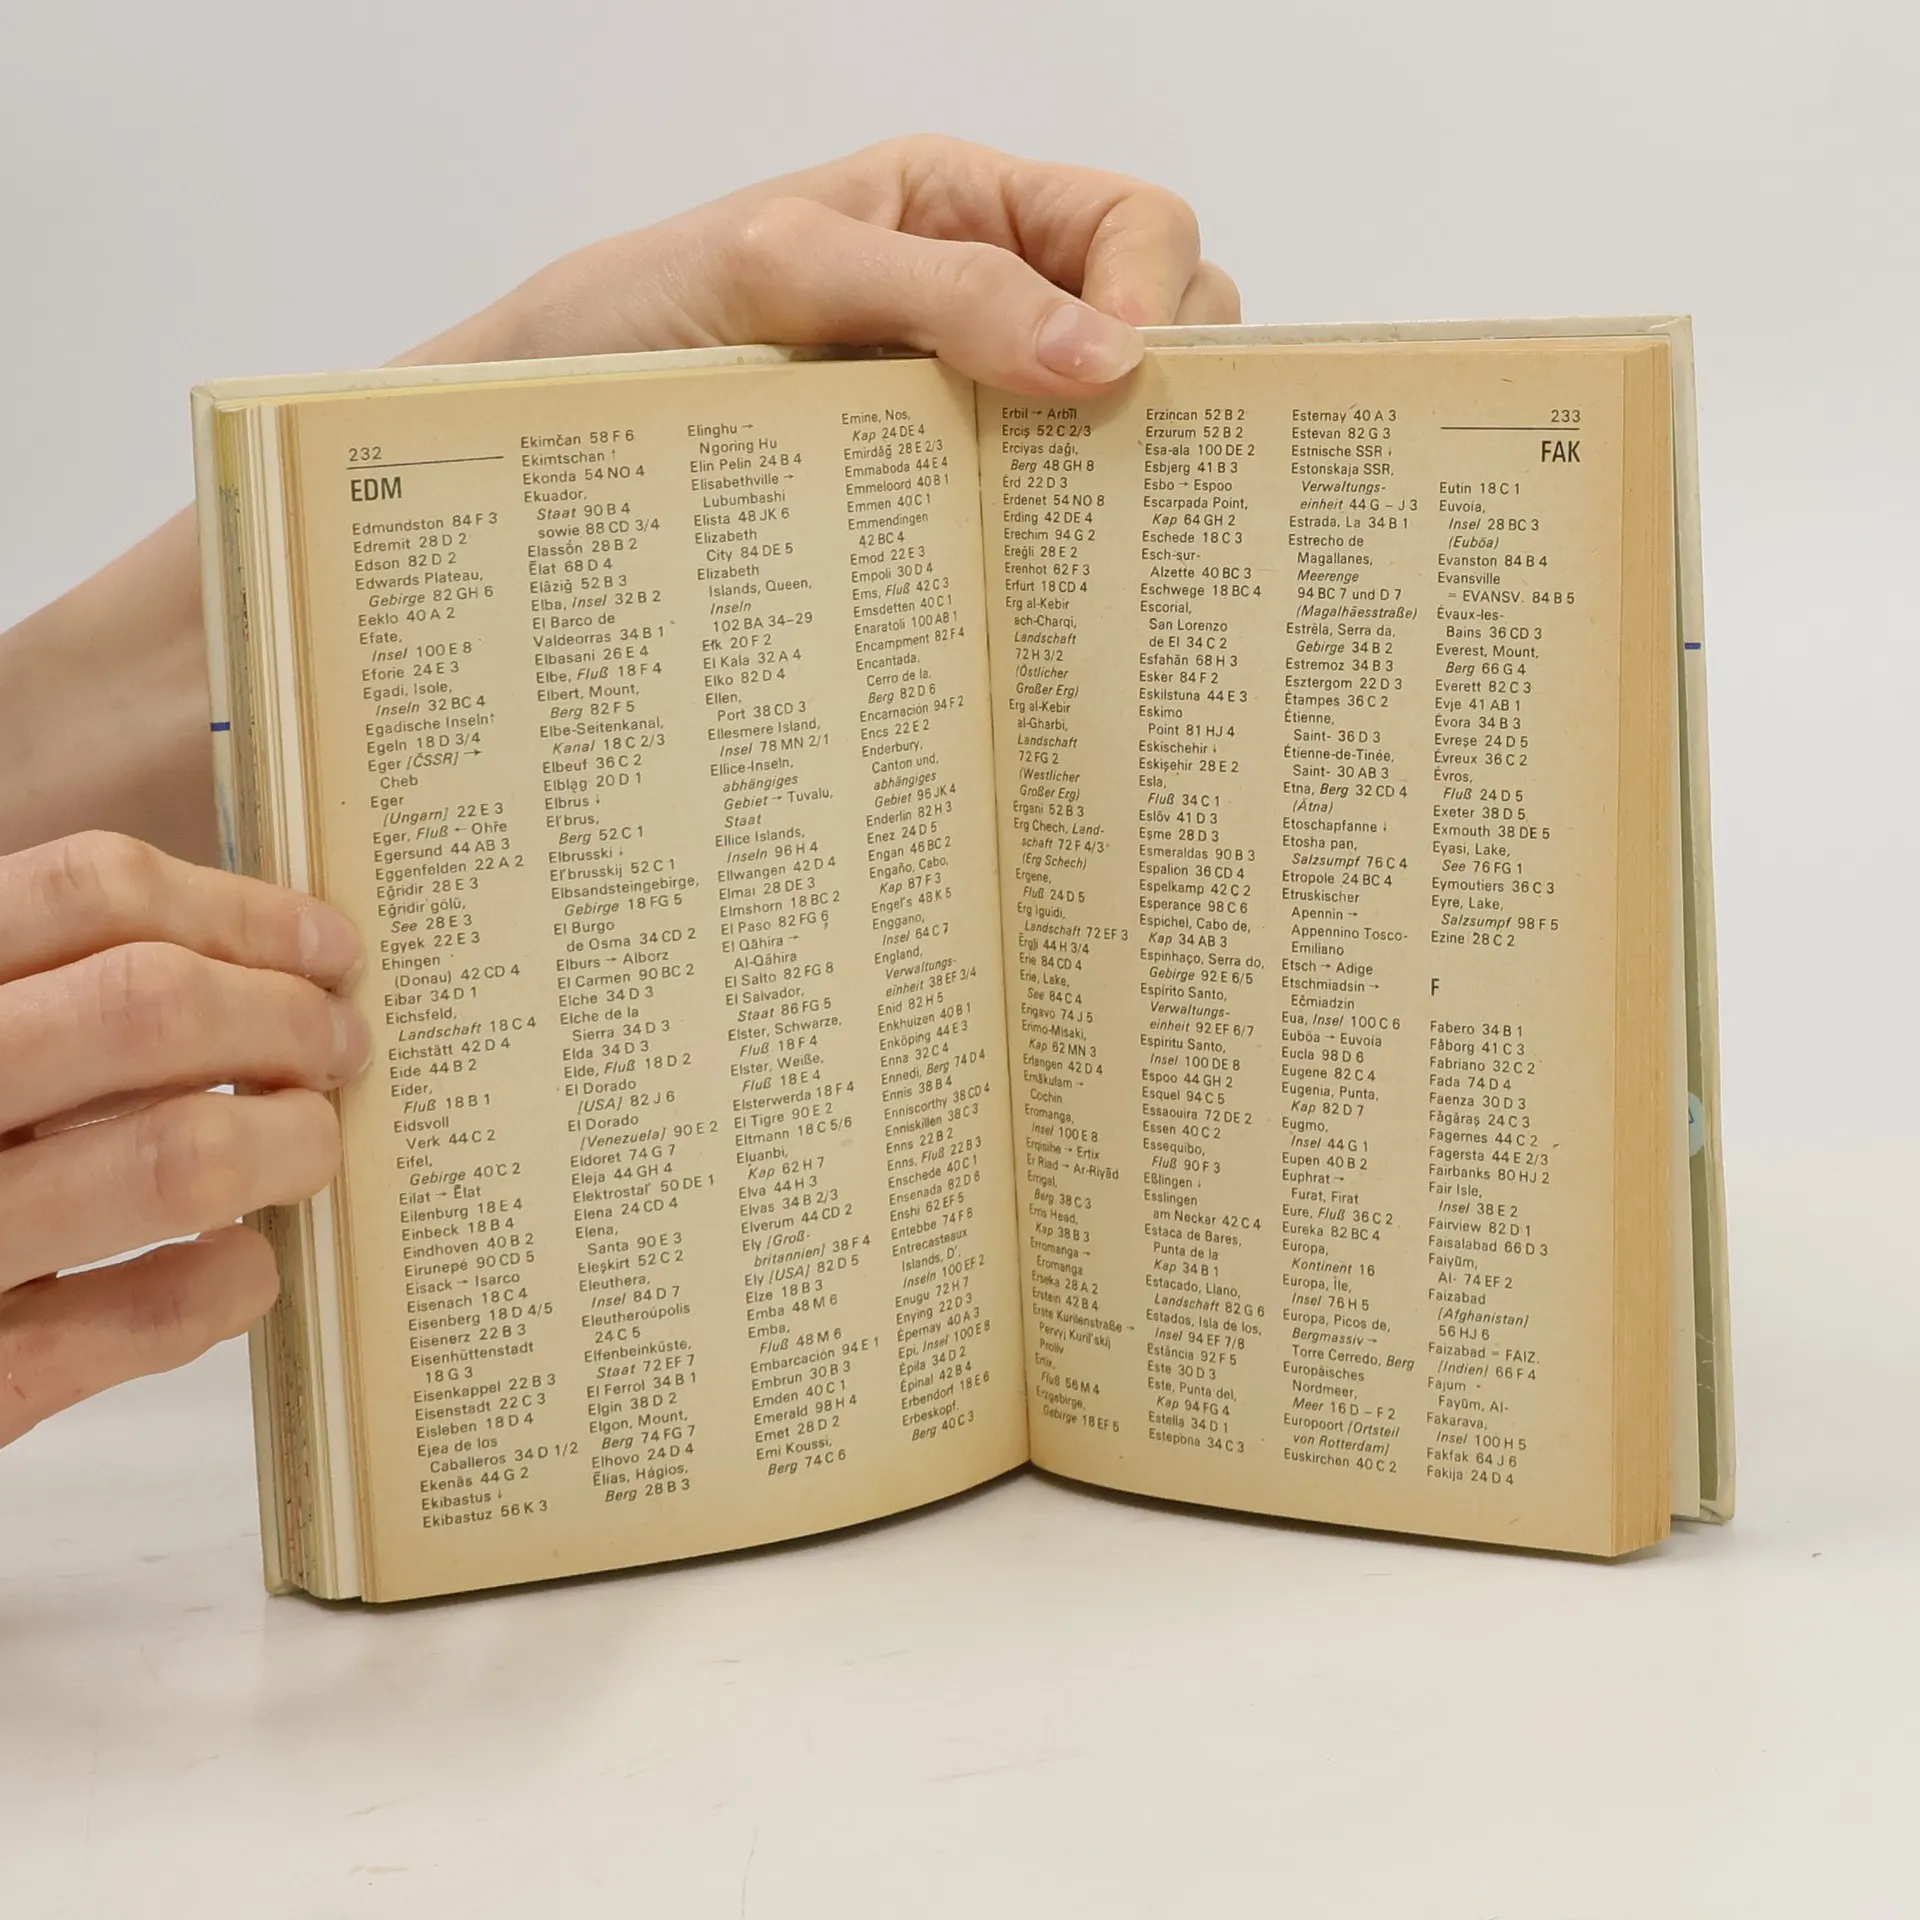 232
EDM
Edmundston 84 F 3
Edremit 28 D 2
Edson 82 D 2
Edwards Plateau,
Gebirge 82 GH 6
Eeklo 40 A 2
Efate,
Insel 100 E 8
Eforie 24 E 3
Egadi, Isole,
Inseln 32 BC 4
Egadische Inseln ↑
Egeln 18 D 3/4
Eger [ČSSR] →
Cheb
Eger
[Ungarn] 22 E 3
Eger, Fluß ← Ohře
Egersund 44 AB 3
Eggenfelden 22 A 2
Eğridir 28 E 3
Eğridir gölü,
See 28 E 3
Egyek 22 E 3
Ehingen
(Donau) 42 CD 4
Eibar 34 D 1
Eichsfeld,
Landschaft 18 C 4
Eichstätt 42 D 4
Eide 44 B 2
Eider,
Fluß 18 B 1
Eidsvoll
Verk 44 C 2
Eifel,
Gebirge 40 C 2
Eilat → Ēlat
Eilenburg 18 E 4
Einbeck 18 B 4
Eindhoven 40 B 2
Eirunepé 90 CD 5
Eisack → Isarco
Eisenach 18 C 4
Eisenberg 18 D 4/5
Eisenerz 22 B 3
Eisenhüttenstadt
18 G 3
Eisenkappel 22 B 3
Eisenstadt 22 C 3
Eisleben 18 D 4
Ejea de los
Caballeros 34 D 1/2
Ekenäs 44 G 2
Ekibastus ↓
Ekibastuz 56 K 3
Ekimčan 58 F 6
Ekimtschan ↑
Ekonda 54 NO 4
Ekuador,
Staat 90 B 4
sowie 88 CD 3/4
Elassón 28 B 2
Ēlat 68 D 4
Elâziğ 52 B 3
Elba, Insel 32 B 2
El Barco de
Valdeorras 34 B 1
Elbasani 26 E 4
Elbe, Fluß 18 F 4
Elbert, Mount,
Berg 82 F 5
Elbe-Seitenkanal,
Kanal 18 C 2/3
Elbeuf 36 C 2
Elbląg 20 D 1
Elbrus ↓
El'brus,
Berg 52 C 1
Elbrusski ↓
El'brusskij 52 C 1
Elbsandsteingebirge,
Gebirge 18 FG 5
El Burgo
de Osma 34 CD 2
Elburs → Alborz
El Carmen 90 BC 2
Elche 34 D 3
Elche de la
Sierra 34 D 3
Elda 34 D 3
Elde, Fluß 18 D 2
El Dorado
[USA] 82 J 6
El Dorado
[Venezuela] 90 E 2
Eldoret 74 G 7
Eleja 44 GH 4
Elektrostal' 50 DE 1
Elena 24 CD 4
Elena,
Santa 90 E 3
Eleşkirt 52 C 2
Eleuthera,
Insel 84 D 7
Eleutheroúpolis
24 C 5
Elfenbeinküste,
Staat 72 EF 7
El Ferrol 34 B 1
Elgin 38 D 2
Elgon, Mount,
Berg 74 FG 7
Elhovo 24 D 4
Ēlías, Hágios,
Berg 28 B 3
Elinghu →
Ngoring Hu
Elin Pelin 24 B 4
Elisabethville →
Lubumbashi
Elista 48 JK 6
Elizabeth
City 84 DE 5
Elizabeth
Islands, Queen,
Inseln
102 BA 34–29
Ełk 20 F 2
El Kala 32 A 4
Elko 82 D 4
Ellen,
Port 38 CD 3
Ellesmere Island,
Insel 78 MN 2/1
Ellice-Inseln,
abhängiges
Gebiet → Tuvalu,
Staat
Ellice Islands,
Inseln 96 H 4
Ellwangen 42 D 4
Elmai 28 DE 3
Elmshorn 18 BC 2
El Paso 82 FG 6
El Qâhira →
Al-Qâhira
El Salto 82 FG 8
El Salvador,
Staat 86 FG 5
Elster, Schwarze,
Fluß 18 F 4
Elster, Weiße,
Fluß 18 E 4
Elsterwerda 18 F 4
El Tigre 90 E 2
Eltmann 18 C 5/6
Eluanbi,
Kap 62 H 7
Elva 44 H 3
Elvas 34 B 2/3
Elverum 44 CD 2
Ely [Groß-
britannien] 38 F 4
Ely [USA] 82 D 5
Elze 18 B 3
Emba 48 M 6
Emba,
Fluß 48 M 6
Embarcación 94 E 1
Embrun 30 B 3
Emden 40 C 1
Emerald 98 H 4
Emet 28 D 2
Emi Koussi,
Berg 74 C 6
Emine, Nos,
Kap 24 DE 4
Emirdâğ 28 E 2/3
Emmaboda 44 E 4
Emmeloord 40 B 1
Emmen 40 C 1
Emmendingen
42 BC 4
Emod 22 E 3
Empoli 30 D 4
Ems, Fluß 42 C 3
Emsdetten 40 C 1
Enaratoli 100 AB 1
Encampment 82 F 4
Encantada,
Cerro de la,
Berg 82 D 6
Encarnación 94 F 2
Encs 22 E 2
Enderbury,
Canton und,
abhängiges
Gebiet 96 JK 4
Enderlin 82 H 3
Enez 24 D 5
Engan 46 BC 2
Engaño, Cabo,
Kap 87 F 3
Engel's 48 K 5
Enggano,
Insel 64 C 7
England,
Verwaltungs-
einheit 38 EF 3/4
Enid 82 H 5
Enkhuizen 40 B 1
Enköping 44 E 3
Enna 32 C 4
Ennedi, Berg 74 D 4
Ennis 38 B 4
Enniscorthy 38 CD 4
Enniskillen 38 C 3
Enns 22 B 2
Enns, Fluß 22 B 3
Enschede 40 C 1
Ensenada 82 D 6
Enshi 62 EF 5
Entebbe 74 F 8
Entrecasteaux
Islands, D',
Inseln 100 EF 2
Enugu 72 H 7
Enying 22 D 3
Épernay 40 A 3
Epi, Insel 100 E 8
Épila 34 D 2
Épinal 42 B 4
Erbendorf 18 E 6
Erbeskopf,
Berg 40 C 3
Erbil → Arbīl
Erciş 52 C 2/3
Erciyas dağı,
Berg 48 GH 8
Érd 22 D 3
Erdenet 54 NO 8
Erding 42 DE 4
Erechim 94 G 2
Ereğli 28 E 2
Erenhot 62 F 3
Erfurt 18 CD 4
Erg al-Kebir
ach-Charqi,
Landschaft
72 H 3/2
(Östlicher
Großer Erg)
Erg al-Kebir
al-Gharbi,
Landschaft
72 FG 2
(Westlicher
Großer Erg)
Ergani 52 B 3
Erg Chech, Land-
schaft 72 F 4/3
(Erg Schech)
Ergene,
Fluß 24 D 5
Erg Iguidi,
Landschaft 72 EF 3
Ērgļi 44 H 3/4
Erie 84 CD 4
Erie, Lake,
See 84 C 4
Erigavo 74 J 5
Erimo-Misaki,
Kap 62 MN 3
Erlangen 42 D 4
Ernākulam →
Cochin
Eromanga,
Insel 100 E 8
Erqisihe → Ertix
Er Riad → Ar-Riyāḍ
Errigal,
Berg 38 C 3
Erris Head,
Kap 38 B 3
Erromanga →
Eromanga
Erseka 28 A 2
Erstein 42 B 4
Erste Kurilenstraße →
Pervyj Kuril'skij
Proliv
Ertix,
Fluß 56 M 4
Erzgebirge,
Gebirge 18 EF 5
Erzincan 52 B 2
Erzurum 52 B 2
Esa-ala 100 DE 2
Esbjerg 41 B 3
Esbo → Espoo
Escarpada Point,
Kap 64 GH 2
Eschede 18 C 3
Esch-sur-
Alzette 40 BC 3
Eschwege 18 BC 4
Escorial,
San Lorenzo
de El 34 C 2
Esfahān 68 H 3
Esker 84 F 2
Eskilstuna 44 E 3
Eskimo
Point 81 HJ 4
Eskischehir ↓
Eskişehir 28 E 2
Esla,
Fluß 34 C 1
Eslöv 41 D 3
Eşme 28 D 3
Esmeraldas 90 B 3
Espalion 36 CD 4
Espelkamp 42 C 2
Esperance 98 C 6
Espichel, Cabo de,
Kap 34 AB 3
Espinhaço, Serra do,
Gebirge 92 E 6/5
Espírito Santo,
Verwaltungs-
einheit 92 EF 6/7
Espiritu Santo,
Insel 100 DE 8
Espoo 44 GH 2
Esquel 94 C 5
Essaouira 72 DE 2
Essen 40 C 2
Essequibo,
Fluß 90 F 3
Eßlingen ↓
Esslingen
am Neckar 42 C 4
Estaca de Bares,
Punta de la
Kap 34 B 1
Estacado, Llano,
Landschaft 82 G 6
Estados, Isla de los,
Insel 94 EF 7/8
Estância 92 F 5
Este 30 D 3
Este, Punta del,
Kap 94 FG 4
Estella 34 D 1
Estepona 34 C 3
Esternay 40 A 3
Estevan 82 G 3
Estnische SSR ↓
Estonskaja SSR,
Verwaltungs-
einheit 44 G – J 3
Estrada, La 34 B 1
Estrecho de
Magallanes,
Meerenge
94 BC 7 und D 7
(Magalhãesstraße)
Estrêla, Serra da,
Gebirge 34 B 2
Estremoz 34 B 3
Esztergom 22 D 3
Étampes 36 C 2
Étienne,
Saint- 36 D 3
Étienne-de-Tinée,
Saint- 30 AB 3
Etna, Berg 32 CD 4
(Ätna)
Etoschapfanne ↓
Etosha pan,
Salzsumpf 76 C 4
Etropole 24 BC 4
Etruskischer
Apennin →
Appennino Tosco-
Emiliano
Etsch → Adige
Etschmiadsin →
Ečmiadzin
Eua, Insel 100 C 6
Euböa → Euvoia
Eucla 98 D 6
Eugene 82 C 4
Eugenia, Punta,
Kap 82 D 7
Eugmo,
Insel 44 G 1
Eupen 40 B 2
Euphrat →
Furat, Firat
Eure, Fluß 36 C 2
Eureka 82 BC 4
Europa,
Kontinent 16
Europa, Île,
Insel 76 H 5
Europa, Picos de,
Bergmassiv →
Torre Cerredo, Berg
Europäisches
Nordmeer,
Meer 16 D – F 2
Europoort [Ortsteil
von Rotterdam]
Euskirchen 40 C 2
233
FAK
Eutin 18 C 1
Euvoia,
Insel 28 BC 3
(Euböa)
Evanston 84 B 4
Evansville
= EVANSV. 84 B 5
Évaux-les-
Bains 36 CD 3
Everest, Mount,
Berg 66 G 4
Everett 82 C 3
Evje 41 AB 1
Évora 34 B 3
Evreşe 24 D 5
Évreux 36 C 2
Évros,
Fluß 24 D 5
Exeter 38 D 5
Exmouth 38 DE 5
Eyasi, Lake,
See 76 FG 1
Eymoutiers 36 C 3
Eyre, Lake,
Salzsumpf 98 F 5
Ezine 28 C 2
F
Fabero 34 B 1
Fåborg 41 C 3
Fabriano 32 C 2
Fada 74 D 4
Faenza 30 D 3
Făgăraş 24 C 3
Fagernes 44 C 2
Fagersta 44 E 2/3
Fairbanks 80 HJ 2
Fair Isle,
Insel 38 E 2
Fairview 82 D 1
Faisalabad 66 D 3
Faiyūm,
Al- 74 EF 2
Faizabad
[Afghanistan]
56 HJ 6
Faizabad = FAIZ.
[Indien] 66 F 4
Fajum -
Fayūm, Al-
Fakarava,
Insel 100 H 5
Fakfak 64 J 6
Fakija 24 D 4